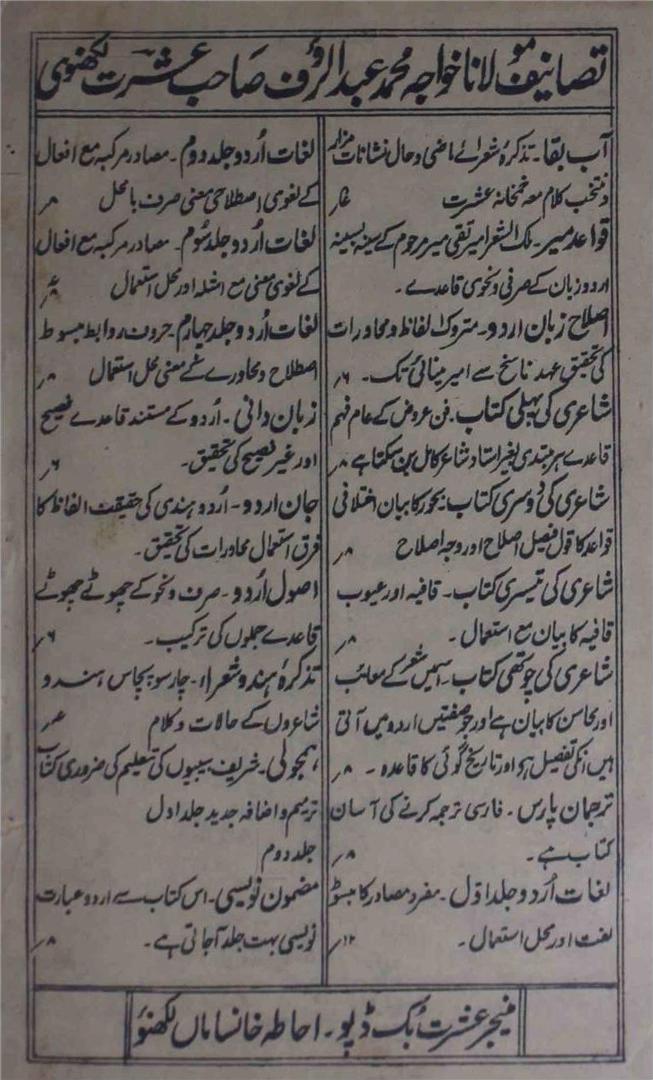 تصانیف مولانا خواجہ محمد عبدالرؤف صاحب عشرت لکھنوی
آب بقا۔ تذکرۂ شعرائے ماضی و حال نشانات مزار
و منتخب کلام معہ خمخانہ عشرت
قواعد میر۔ ملک الشعرا میر تقی میر مرحوم کے سینہ بسینہ
اردو زبان کے صرفی و نحوی قاعدے۔
اصلاح زبان اردو۔ متروک الفاظ و محاورات
کی تحقیق عہد ناسخ سے امیر مینائی تک۔ ۶؍
شاعری کی پہلی کتاب۔ فن عروض کے عام فہم
قاعدے ہر مبتدی بغیر استاد شاعر کامل بن سکتا ہے ۸؍
شاعری کی دوسری کتاب۔ بحور کا بیان اختلافی
قواعد کا قول فیصل اصلاح اور وجہ اصلاح ۸؍
شاعری کی تیسری کتاب۔ قافیہ اور عیوب
قافیہ کا بیان مع استعمال۔ ۸؍
شاعری کی چوتھی کتاب۔ اسمیں شعر کے معائب
اور محاسن کا بیان ہے اور جو صفتیں اردو میں آتی
ہیں انکی تفصیل ہو اور تاریخ گوئی کا قاعدہ۔ ۸؍
ترجمان پارس۔ فارسی ترجمہ کرنے کی آسان
کتاب ہے۔ ۸؍
لغات اُردو جلد اول۔ مفرد مصادر کا مبسوط
لغت اور محل استعمال۔ ۱۲؍
لغات اُردو جلد دوم۔ مصادر مرکبہ مع افعال
کے لغوی اصطلاحی معنی صرف با محل ۸؍
لغات اُردو جلد سُوم۔ مصادر مرکبہ مع افعال
کے لغوی معنی مع امثلہ اور محل استعمال
لغات اُردو جلد چہارم۔ حروف روابط مبسوط
اصطلاح و محاورے کے معنی محل استعمال ۸؍
زبان دانی۔ اُردو کے مستند قاعدے فصیح
اور غیر فصیح کی تحقیق۔ ۶؍
جان اردو۔ اُردو ہندی کی حقیقت الفاظ کا
فرق استعمال محاورات کی تحقیق۔
اصول اُردو۔ صرف و نحو کے چھوٹے چھوٹے
قاعدے جملوں کی ترکیب۔ ۶؍
تذکرۂ ہندو شعرا۔ چار سو پچاس ہندو
شاعروں کے حالات و کلام
ہمجولی۔ شریف بیبیوں کی تعلیم کی ضروری کتاب
ترمیم و اضافہ جدید جلد اول
جلد دوم
مضمون نویسی۔ اس کتاب سے اردو عبارت
نویسی بہت جلد آجاتی ہے۔ ۸؍
منیجر عشرت بُک ڈپو۔ احاطہ خانساماں لکھنؤ